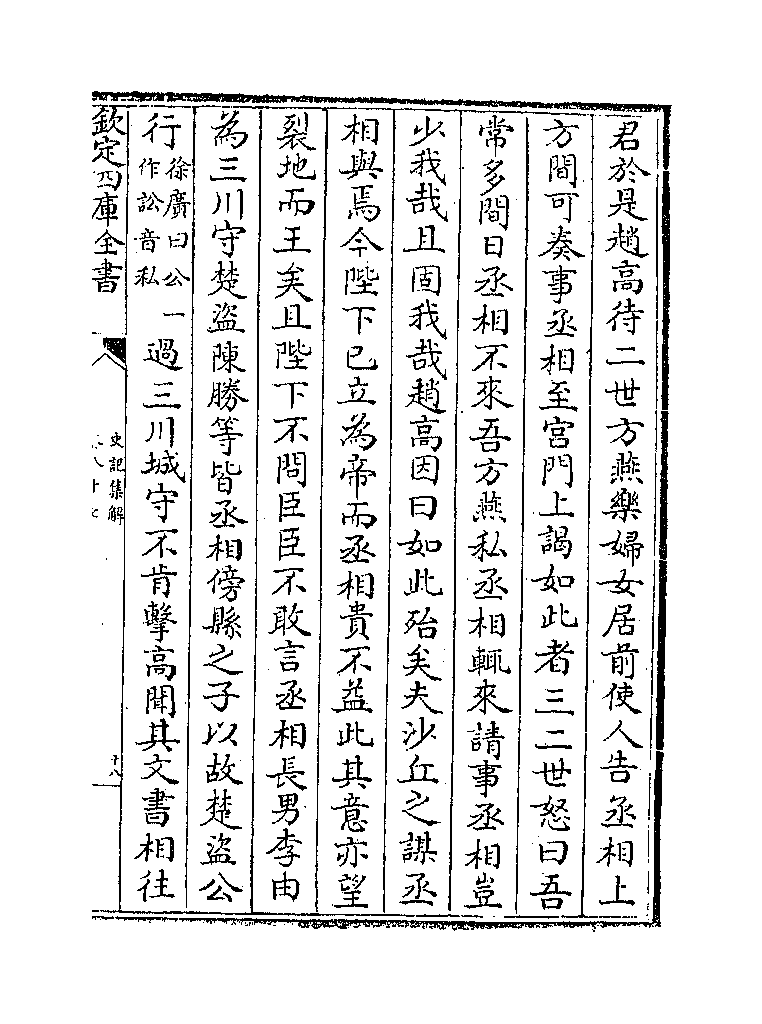 君於是趙高待二世方燕樂婦女居前使人告丞相上
方間可奏事丞相至宮門上謁如此者三二世怒曰吾
常多間日丞相不來吾方燕私丞相輒來請事丞相豈
少我哉且固我哉趙高因曰如此殆矣夫沙丘之謀丞
相與焉今陛下已立為帝而丞相貴不益此其意亦望
裂地而王矣且陛下不問臣臣不敢言丞相長男李由
為三川守楚盜陳勝等皆丞相傍縣之子以故楚盜公
行徐廣曰公一作訟音私過三川城守不肯擊高聞其文書相往
欽定四庫全書
史記集解
卷八十七
十八